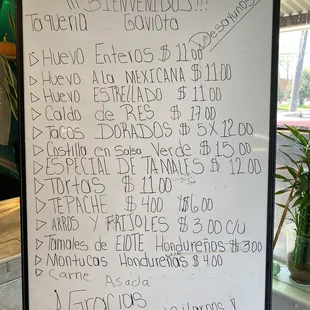 ¡¡¡ BIENVENIDOS!!!
Taqueria Gaviota
Desayunos
▷ HUEVO Enteros $ 11.00
▷ HUEVO A la MEXICANA $ 11.00
▷ HUEVO ESTRELLADO $ 11.00
▷ Caldo de RES $ 17.00
▷ Tacos DORADOS $ 5X12.00
▷ Costilla en Salsa Verde $ 15.00
▷ ESPECIAL DE TAMALES $ 12.00
▷ TORTAS $ 11.00
▷ TEPACHE $ 4.00 y $6.00
▷ ARROS Y FRIJOLES $ 3.00 C/U
▷ Tamales de ELOTE Hondureños $ 3.00
▷ Montucas Hondureñas $ 4.00
▷ Carne Asada
¡ Gracias